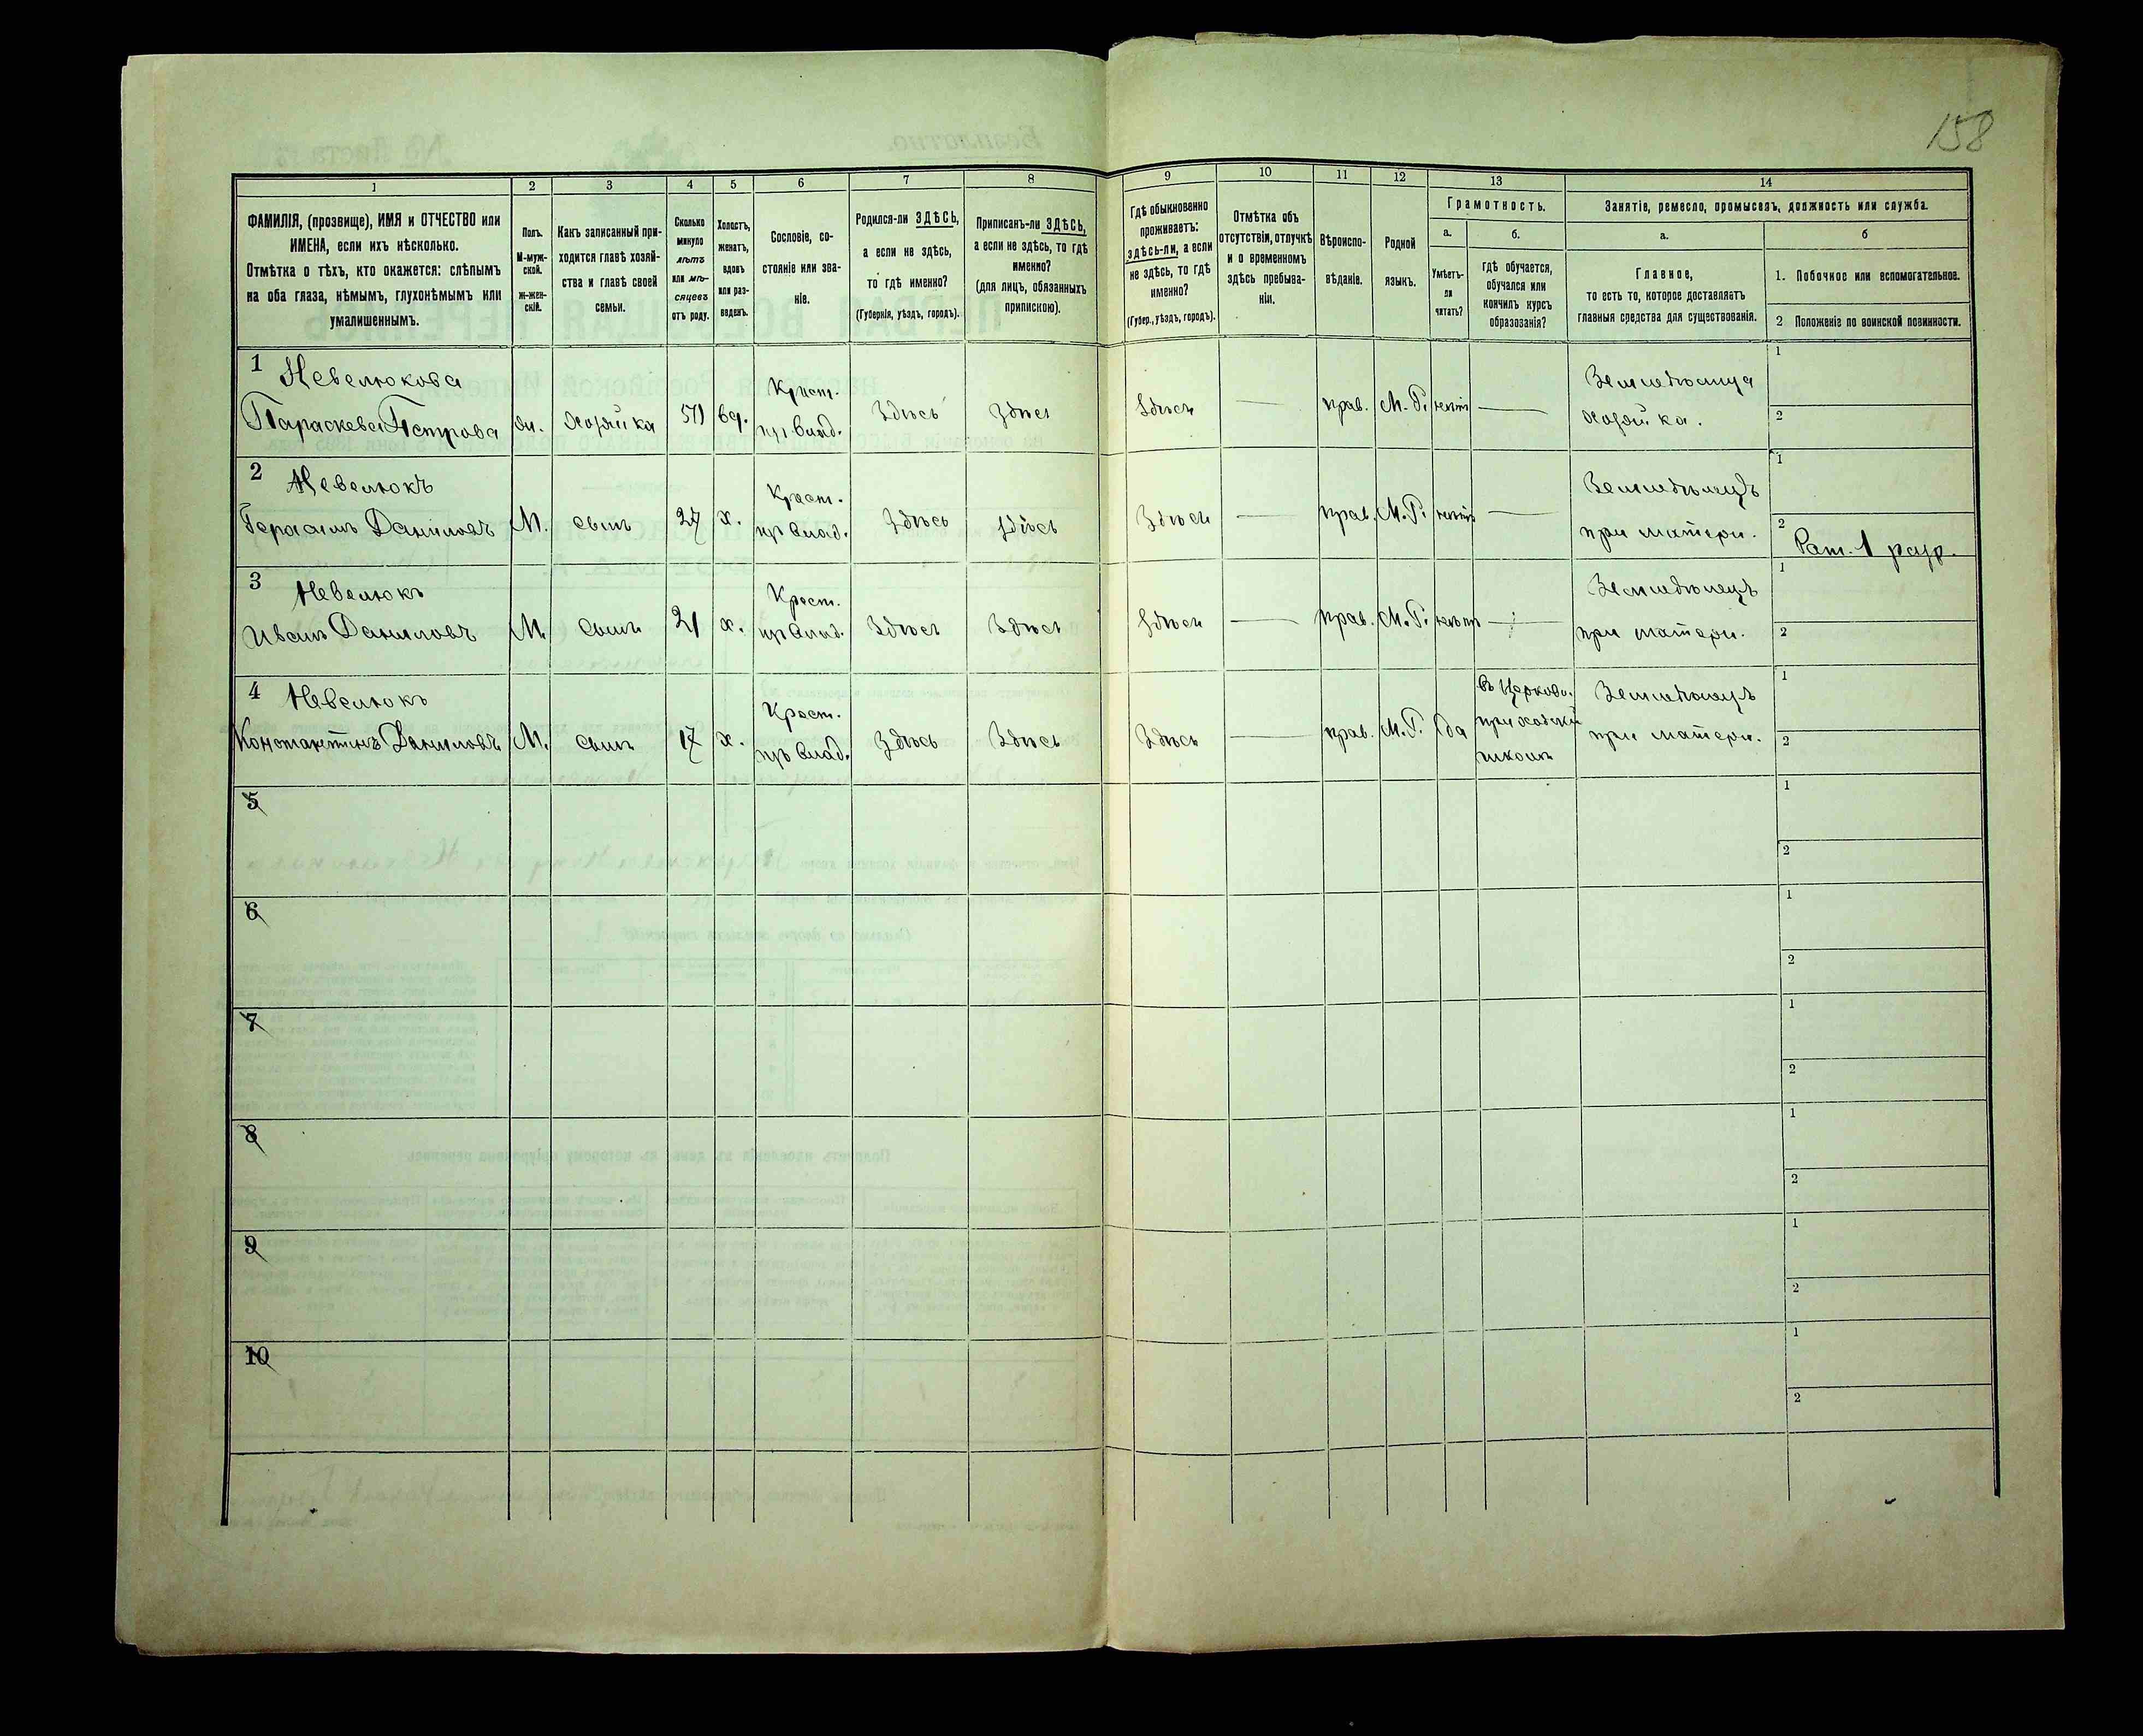 158
1 2 3 4 5 6 7 8 9 10 11 12 13 14
ФАМИЛІЯ, (прозвище), ИМЯ и ОТЧЕСТВО или
ИМЕНА, если ихъ нѣсколько.
Отмѣтка о тѣхъ, кто окажется: слѣпымъ
на оба глаза, нѣмымъ, глухонѣмымъ или
умалишеннымъ.
Полъ.
М-муж-
ской.
ж-жен-
скій.
Какъ записанный при-
ходится главѣ хозяй-
ства и главѣ своей
семьи.
Сколько
минуло
лѣтъ
или мѣ-
сяцевъ
отъ роду.
Холостъ,
женатъ,
вдовъ
или раз-
веденъ.
Сословіе, со-
стояніе или зва-
ніе.
Родился-ли ЗДѢСЬ,
а если не здѣсь,
то гдѣ именно?
(Губернія, уѣздъ, городъ).
Приписанъ-ли ЗДѢСЬ,
а если не здѣсь, то гдѣ
именно?
(для лицъ, обязанныхъ
припискою).
Гдѣ обыкновенно
проживаетъ:
здѣсь-ли, а если
не здѣсь, то гдѣ
именно?
(Губер., уѣздъ, городъ).
Отмѣтка объ
отсутствіи, отлучкѣ
и о временномъ
здѣсь пребыва-
ніи.
Вѣроиспо-
вѣданіе.
Родной
языкъ.
Грамотность.
а.
Умѣетъ-
ли
читать?
б.
Гдѣ обучается,
обучался или
кончилъ курсъ
образованія?
Занятіе, ремесло, промыселъ, должность или служба.
а.
Главное,
то есть то, которое доставляетъ
главныя средства для существованія.
б
1. Побочное или вспомогательное.
2 Положеніе по воинской повинности.
1 Невелюкова
Параскева Петрова
жн.
хозяйка
вд.
Крест.
Здѣсь
Здѣсь
Здѣсь
—
прав.
М. Р.
—
Земледѣлица
хозяйка.
1
2
2 Невелюкъ
Герасимъ Даниловъ
М.
сынъ
27
х.
Крест.
пр влад.
Здѣсь
Здѣсь
Здѣсь
—
прав.
М. Р.
—
Земледѣлецъ
при матери.
1
2 Рат. 1 разр.
3 Невелюкъ
Иванъ Даниловъ
М.
сынъ
21
х.
Крест.
пр влад.
Здѣсь
Здѣсь
Здѣсь
—
прав.
М. Р.
—
Земледѣлецъ
при матери.
1
2
4 Невелюкъ
Константинъ Даниловъ
М.
сынъ
17
х.
Крест.
пр влад.
Здѣсь
Здѣсь
Здѣсь
—
прав.
М. Р.
да
въ Церковн.
школѣ
Земледѣлецъ
при матери.
1
2
5
1
2
6
1
2
7
1
2
8
1
2
9
1
2
10
1
2